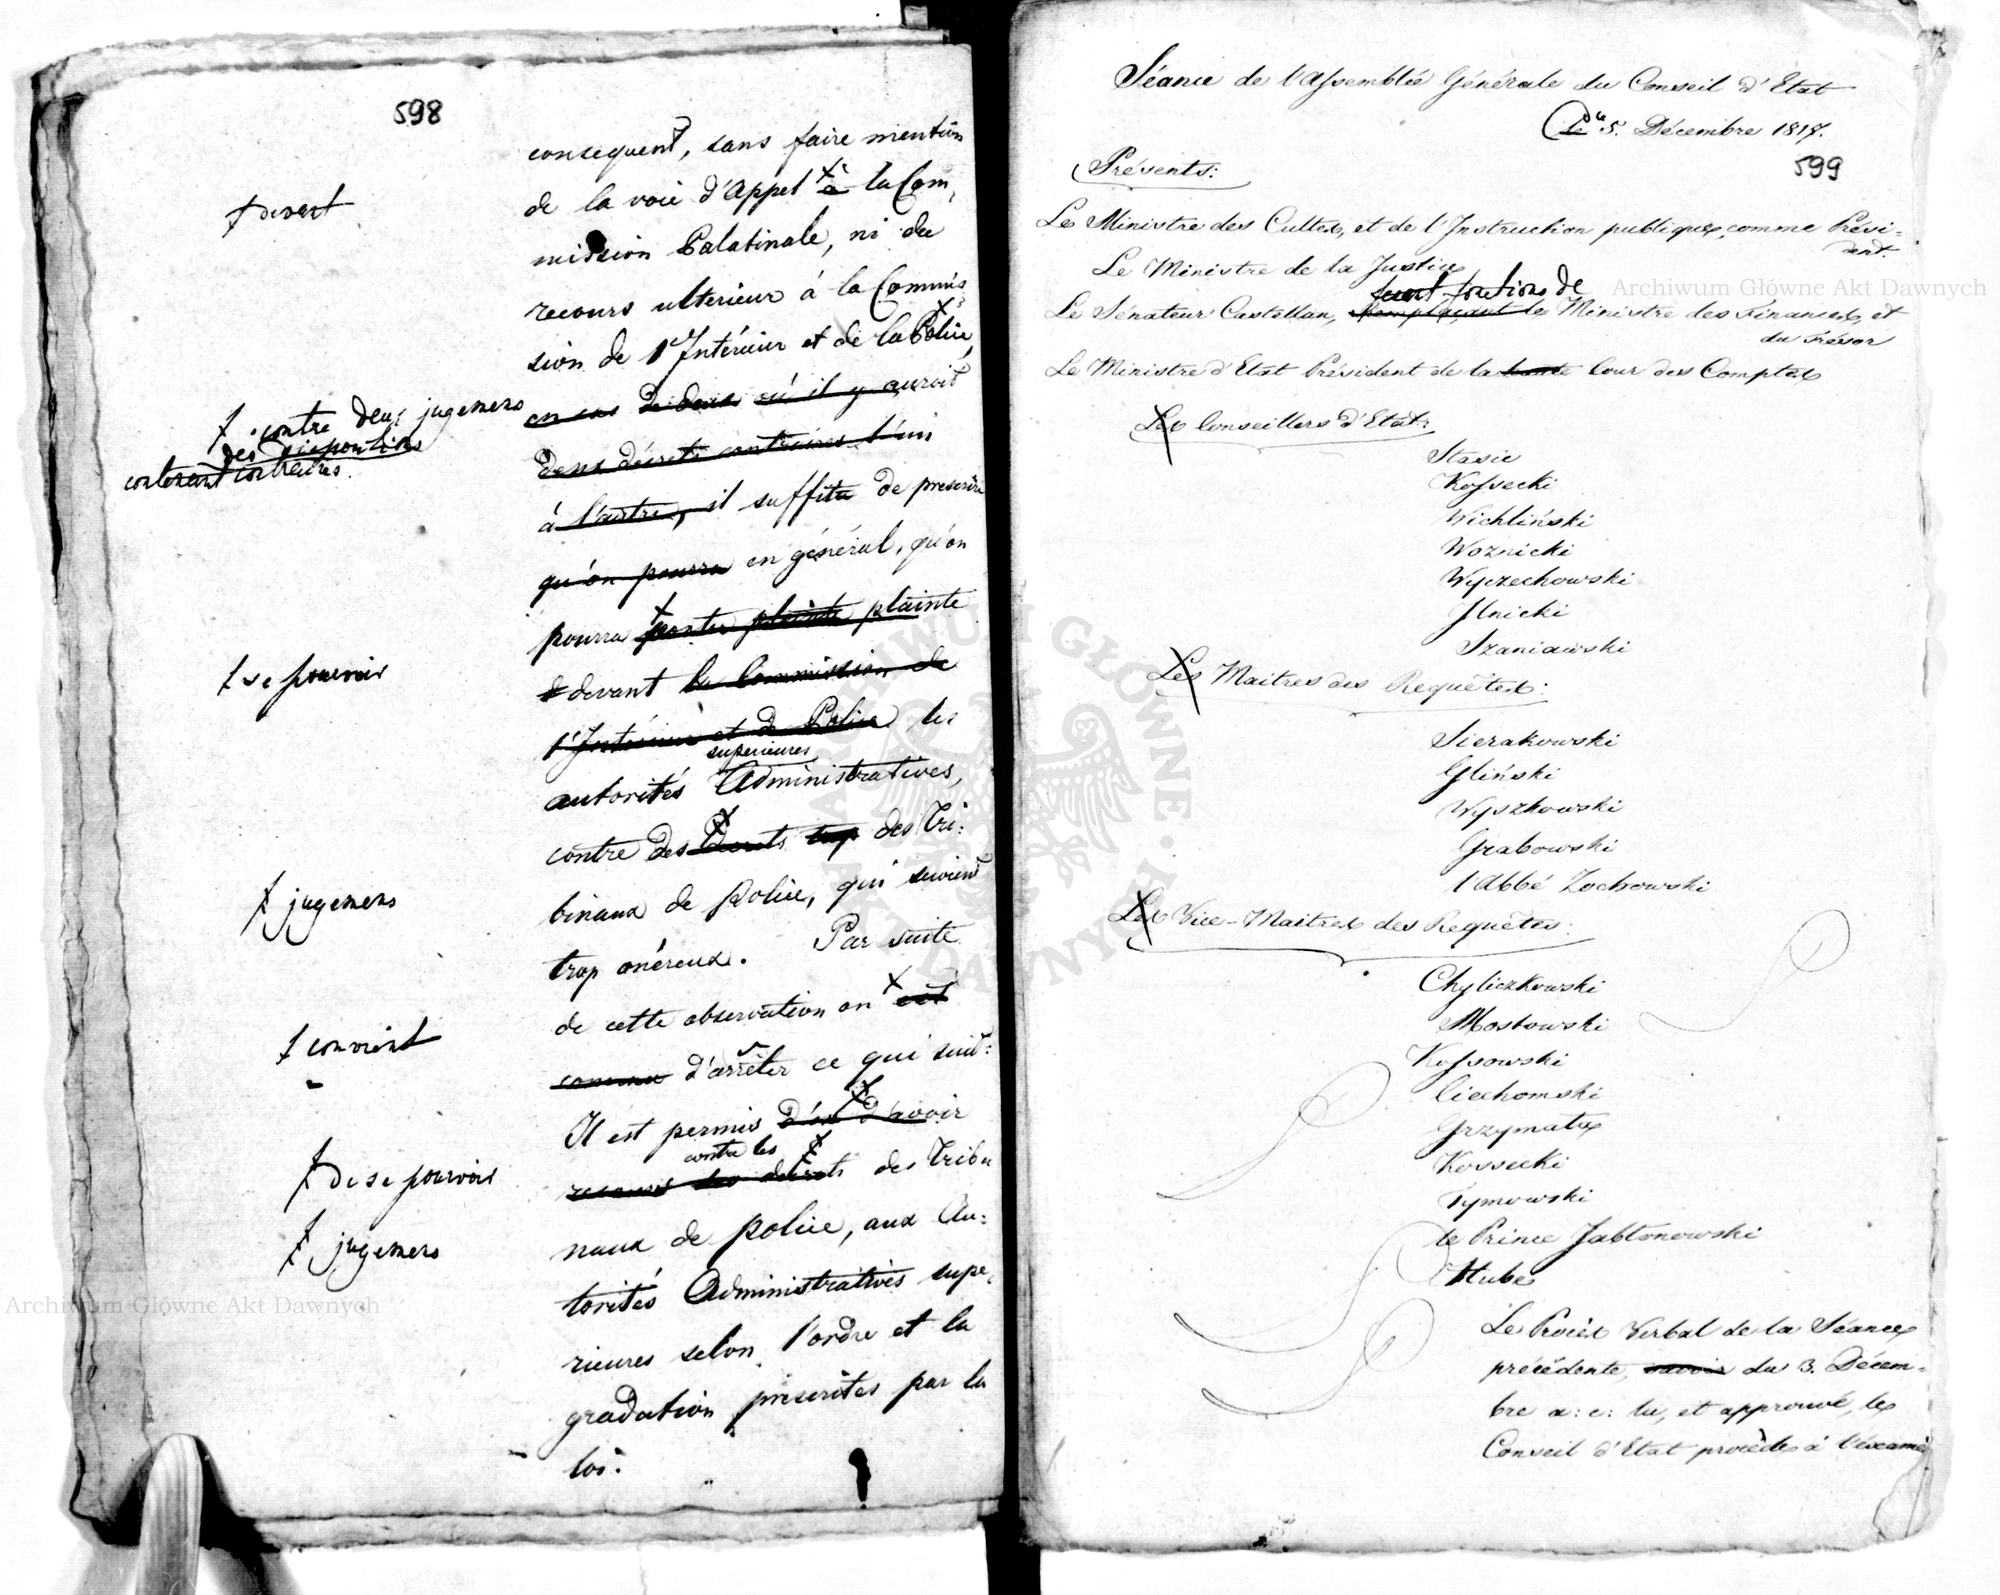 598
consequent, sans faire mention
de la voie d'Appel à la Com,
mission Palatinale, ni du
recours ulterieur à la Commis
sion de l'Intérieur et de la Police,
en cas de deux où il y auroit
deux décrets contraires l'un
à l'autre, il suffira de prescrire
qu'on pourra en général, qu'on
pourra porter plainte plainte
devant la Commission de
l'Intérieur et de Police les
superieures
autorités Administratives,
contre des Décrets trop des Tri:
binaux de police, qui seroient
trop onéreux. Par suite
de cette observation on est
convenu d'arrêter ce qui suit:
Il est permis d'avoir
contre les
recours des décrets des Tribu
naux de police, aux Au:
torités Administratives supe,
rieures selon l'ordre et la
gradation prescrites par la
loi.
devant
contre deux jugemens
des dispositions
contenant contraires.
se pouvoir
jugemens
convient
De se pourvoir
jugemens
Séance de l'Assemblée Générale du Conseil d'Etat
Du 5. Décembre 1817.
599
Présents:
Le Ministre des Cultes, et de l'Instruction publique, comme Prési-
dent.
Le Ministre de la Justice
fonctions de
Le Sénateur Castellan, remplaçant le Ministre des Finances, et
du Trésor
Le Ministre d'Etat Président de la haute Cour des Comptes
Les Conseillers d'Etat:
Stasic
Kossecki
Wichliński
Woznicki
Wyczechowski
Ilnicki
Szaniawski
Les Maitres des Requêtes:
Sierakowski
Gliński
Wyszkowski
Grabowski
l'Abbé Zochowski
Les Vice-Maitres des Requêtes:
Chyliczkowski
Mostowski
Kossowski
Ciechomski
Grzymała
Kossecki
Tymowski
le Prince Jabłonowski
Hube
Le Procès Verbal de la Séance
précédente, savoir du 3. Décem-
bre a: c: lu, et approuvé, le
Conseil d'Etat procède à l'examen
Archiwum Główne Akt Dawnych
Archiwum Główne Akt Dawnych
ARCHIWUM GŁÓWNE AKT DAWNYCH